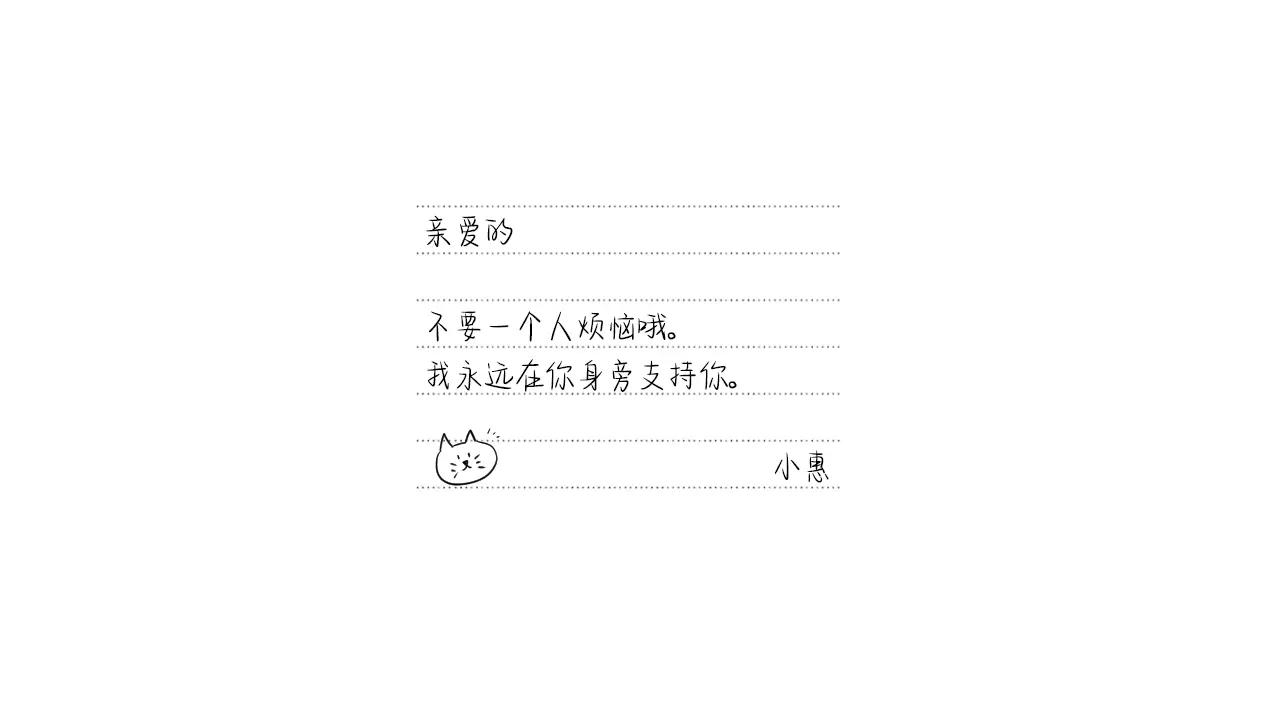 亲爱的
不要一个人烦恼哦。
我永远在你身旁支持你。
小惠